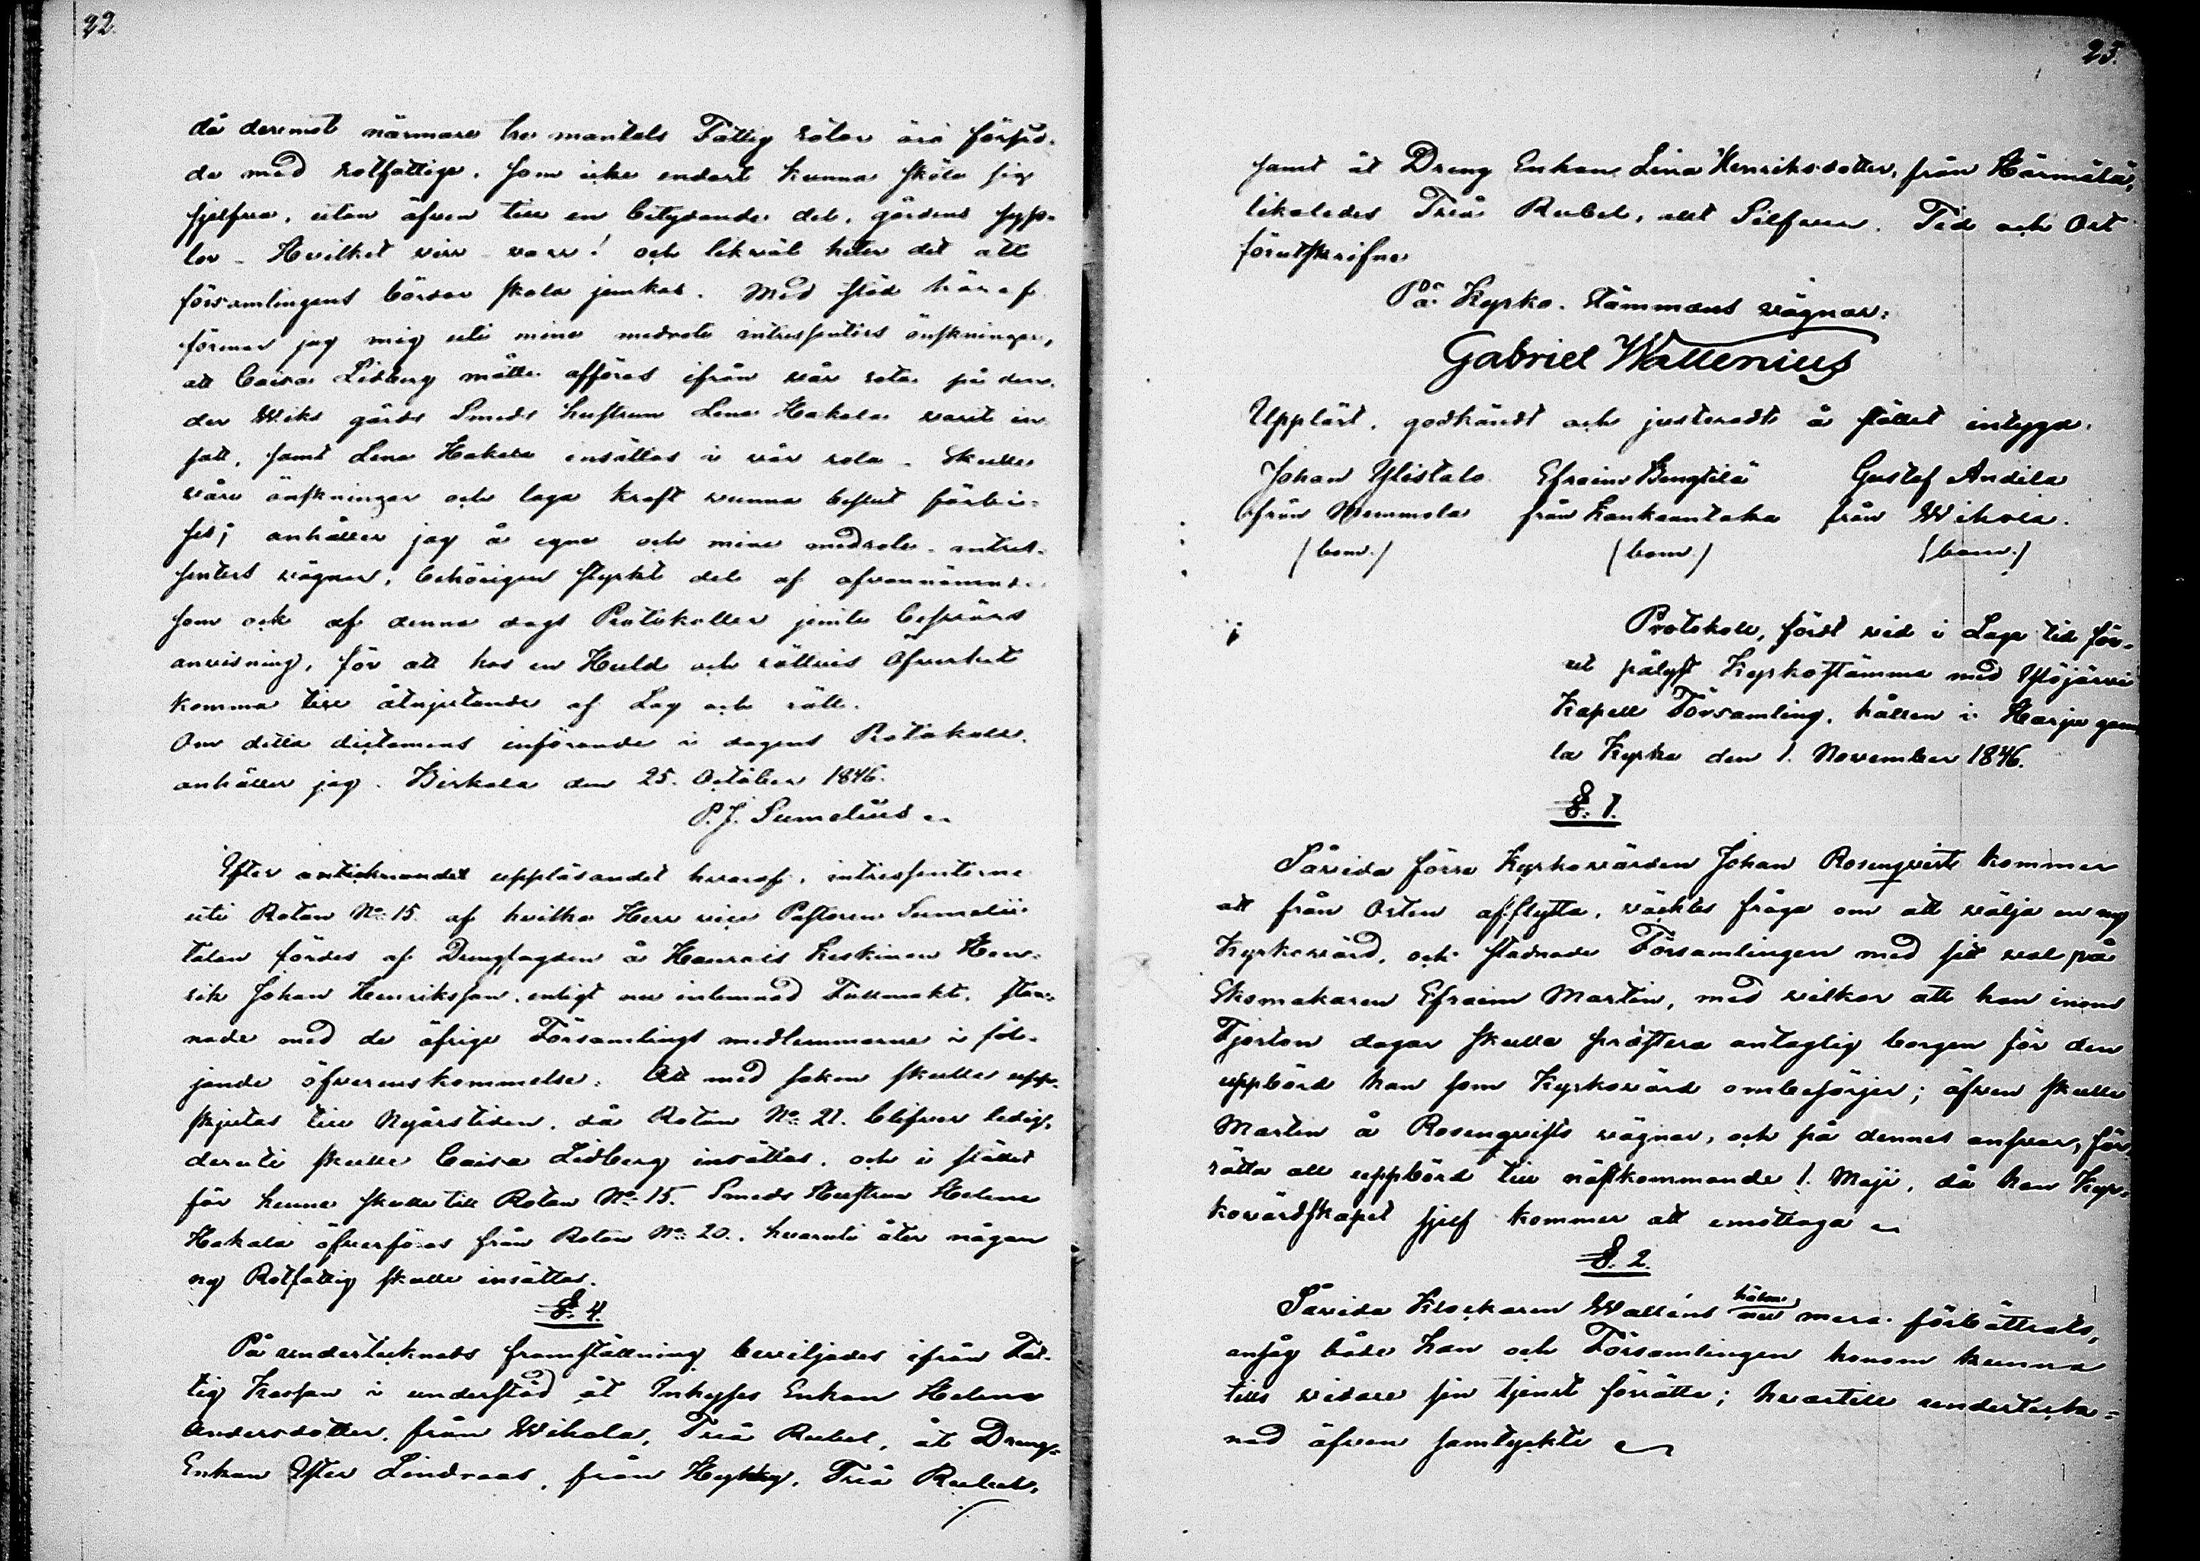 22.
då deremot närmare tre mantals Fattig rotar äro försed-
da med rotfattige, som icke endast kunna sköta sig
sjelfva, utan äfven till en betydande del, gårdens syss-
lor - Hvilket vare! och likväl heter det att
församlingens bördor skola jemkas. Med stöd häraf
förenar jag mig uti mine medrote intressenters önskningar,
att Caisa Lidberg måtte afföras ifrån vår rota på den,
der Wiks gårds Smeds hustrun Lena Hakala varit in
satt, samt Lena Hakala insättas i vår rota. Skulle
våra önskningar och laga kraft vunna beslut förbi-
ses; anhåller jag å egna och mine medrote-intres-
senters vägnar, behörigen styrkt del af ofvannämnde
som ock af denna dags Protokoller jemte besvärs
anvisning, för att hos en Huld och rättvis Öfverhet
komma till åtnjutande af Lag och rätt.
Om detta dictamens införande i dagens Protokoll,
anhåller jag. Birkala den 25. October 1846.
P. J. Sumelius
Efter antecknandet uppläsandet hvaraf, intressenterne
uti Rotan No 15. af hvilka Herr vice Pastoren Sumelii
talan fördes af Drengfogden å Hen-
rik Johan Henriksson, enligt nu inlemnad Fullmakt, stan-
nade med de öfrige Församlings medlemmarne i föl-
jande öfverenskommelse: Att med saken skulle upp-
skjutas till Nyårstiden, då Rotan No 21. blifver ledig,
deruti skulle Caisa Lidberg insättas, och i stället
för henne skulle till Rotan No 15. Smeds Hustrun Helena
Hakala öfverföras från Rotan No 20., hvaruti åter någon
ny Rotfattig skulle insättas.
§. 4.
På undertecknads framställning beviljades ifrån Fat-
tig Kassan i understöd åt Inhyses Enkan Helena
Andersdotter, från Wihola, Tre Rubel, åt Dreng-
Enkan Ester Lindroos, från Hyhky, Tre Rubel,
23.
samt åt Dreng Enkan Lina Henriksdotter, från Härmälä,
likaledes Tre Rubel, allt Silfver. Tid och Ort
förutskrifne
På Kyrko-stämmans vägnar:
Gabriel Wallenius
Uppläst, godkändt och justeradt å stället intyga.
Johan Ylistalo Efraim Bengtilä Gustaf Andila
från Nemmola från Kankaantaka från Wihola.
(bom.) (bom.) (bom.)
Protokoll, fördt vid i Laga tid för-
ut pålyst Kyrkostämma med Ylöjärvi
Kapell Församling, hållen i Harju gam
la Kyrka den 1. November 1846.
§. 1.
Såvida förre Kyrkovärden Johan Rosenqvist kommer
att från Orten afflytta, väcktes fråga om att välja en ny
Kyrkovärd, och stadnade Församlingen med sitt val på
Skomakaren Efraim Martin, med vilkor att han inom
Fjorton dagar skulle prästera antaglig borgen för den
uppbörd han som Kyrkovärd ombesörjer; äfven skulle
Martin å Rosenqvists vägnar, och på dennes ansvar, för
rätta all uppbörd till nästkommande 1. Maji, då han Kyr-
kovärdskapet sjelf kommer att emottaga
§. 2.
Såvida Klockaren Walléns hälsa nu mera förbättrats,
ansåg både han och Församlingen honom kunna
tills vidare sin tjenst förrätta; hvartill underteckna-
nad äfven samtyckte